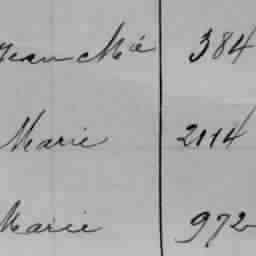 Jean Mié 384
Marie 2114
Marie 972